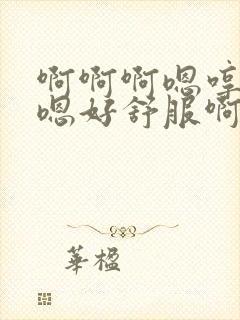 啊啊啊嗯哼
嗯好舒服啊
華楹